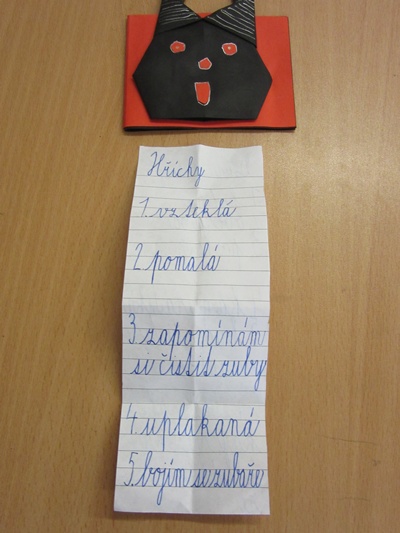 Hříchy
1. vzteklá
2. pomalá
3 zapomínám
si čistit zuby
4 uplakaná
5. bojím se zubaře